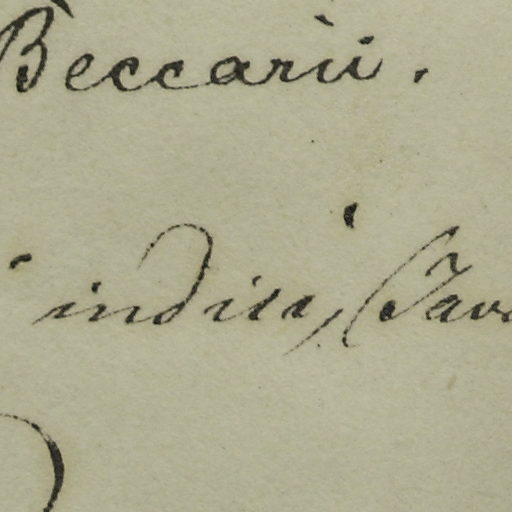 Beccarii.
indici, (Java